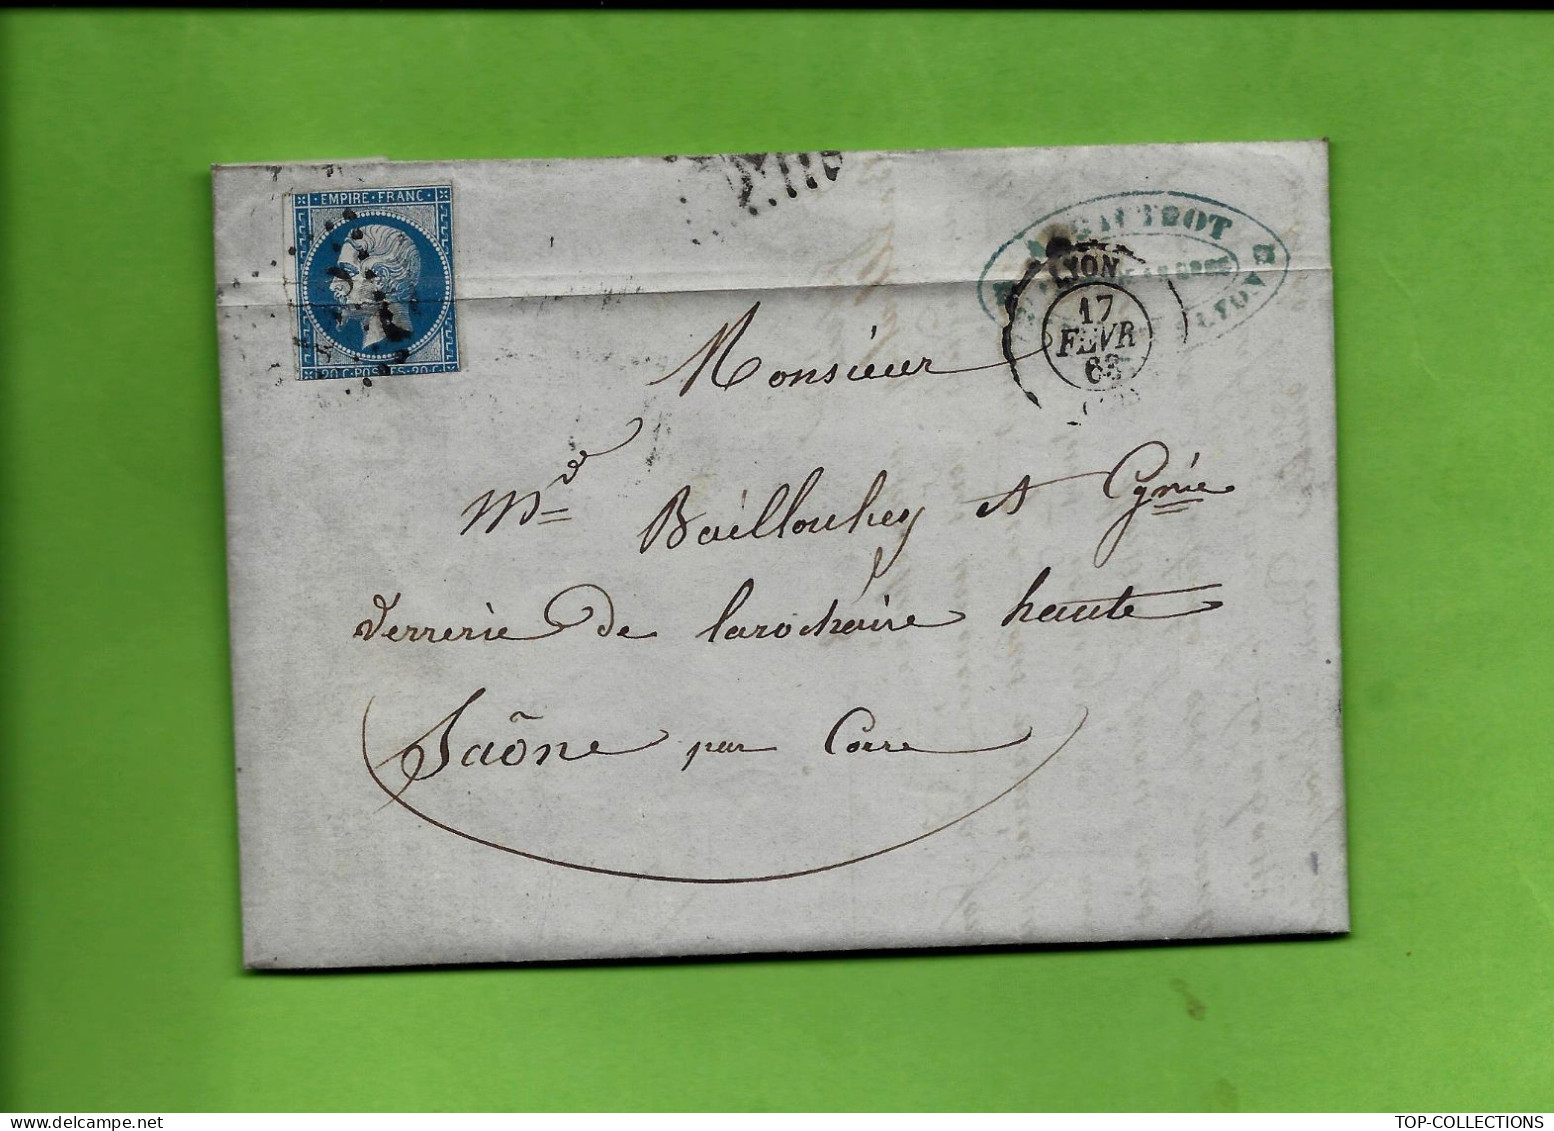 EMPIRE FRANC
20 C · POSTES · 20 C
LYON
LYON
17
FEVR
63
Monsieur
Md Baillouhey et Cgnie
Verrerie de larochaire haute
Saône par Corre
TOP-COLLECTIONS